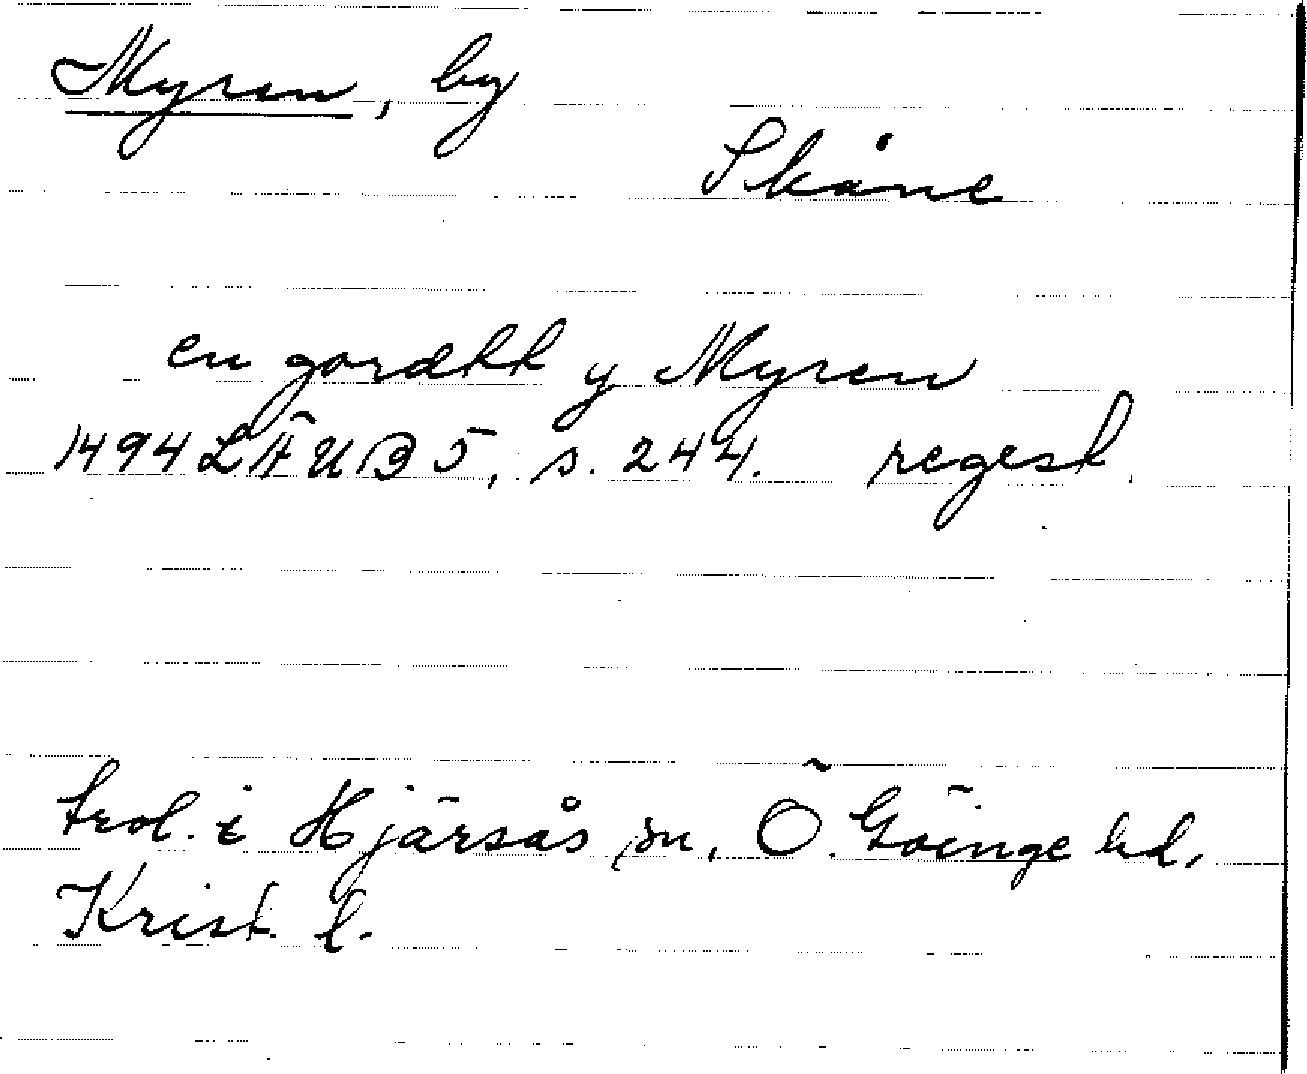 Myren, by
Skåne
en gordkk y Myren
1494 LÄUB 5, s. 244. regest.
trol. i Hjärsås sn, Ö. Göinge hd,
Krist. l.